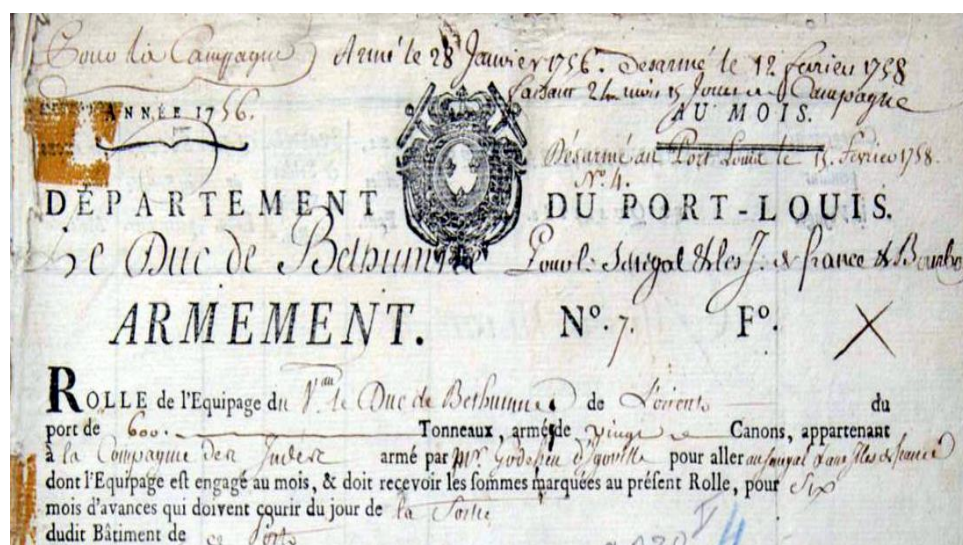 Armé le 28 Janvier 1756. Desarmé le 12 fevrier 1758
faisant 24 mois 15 Jours de Campagne
ANNÉE 1756.
AU MOIS.
Désarmé au Port Louis le 15. fevrier 1758.
N° 4.
DÉPARTEMENT DU PORT-LOUIS.
Le Duc de Bethunne Pour le Senegal & les J. de france & Bourbo
ARMEMENT. N°. 7. F°.
ROLLE de l'Equipage du V.au le Duc de Bethunne de Lorient du
port de 600. Tonneaux, armé de vingt Canons, appartenant
à la Compagnie des Indes armé par Mr. Godeheu d'Igoville pour aller au Senegal & aux Isles de france
dont l'Equipage est engagé au mois, & doit recevoir les sommes marquées au présent Rolle, pour Six
mois d'avances qui doivent courir du jour de la Sortie
dudit Bâtiment de ce Port